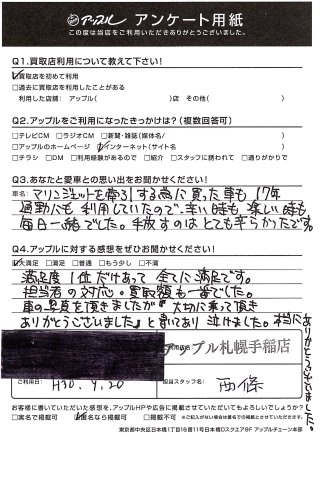 アップル アンケート用紙
この度は当店をご利用いただきありがとうございました。
Q1.買取店利用について教えて下さい!
買取店を初めて利用
□過去に買取店を利用したことがある
利用した店舗: アップル( )店 その他( )
Q2.アップルをご利用になったきっかけは?(複数回答可)
□テレビCM □ラジオCM □新聞・雑誌(媒体名/ )
□アップルのホームページ インターネット(サイト名 )
□チラシ □DM □利用経験があるので □紹介 □スタッフに誘われて □通りがかりで
Q3.あなたと愛車との思い出をお聞かせください!
車名: マリンジェットを牽引する為に買った車も17年
通勤にも利用していたので、辛い時も楽しい時も
毎日一緒でした。手放すのはとても辛かったです。
Q4.アップルに対する感想をぜひお聞かせください!
大満足 □満足 □普通 □もう少し □不満
満足度1位だけあって全てに満足です。
担当者の対応・買取額も一番でした。
車の写真を頂きましたが『大切に乗って頂き
ありがとうございました』と書いてあり泣けました。本当に
ありがとうございました。
ご利用店名
アップル札幌手稲店
ご利用日: H30.4.20
担当スタッフ名: 西條
お客様に書いていただいた感想を、アップルHPや広告に掲載させていただいてもよろしいでしょうか?
□実名で掲載可 匿名なら掲載可 □掲載不可 ※ご記入がない場合は匿名での掲載とさせていただきます。
東京都中央区日本橋1丁目16番11号日本橋Dスクエア9F アップルチェーン本部